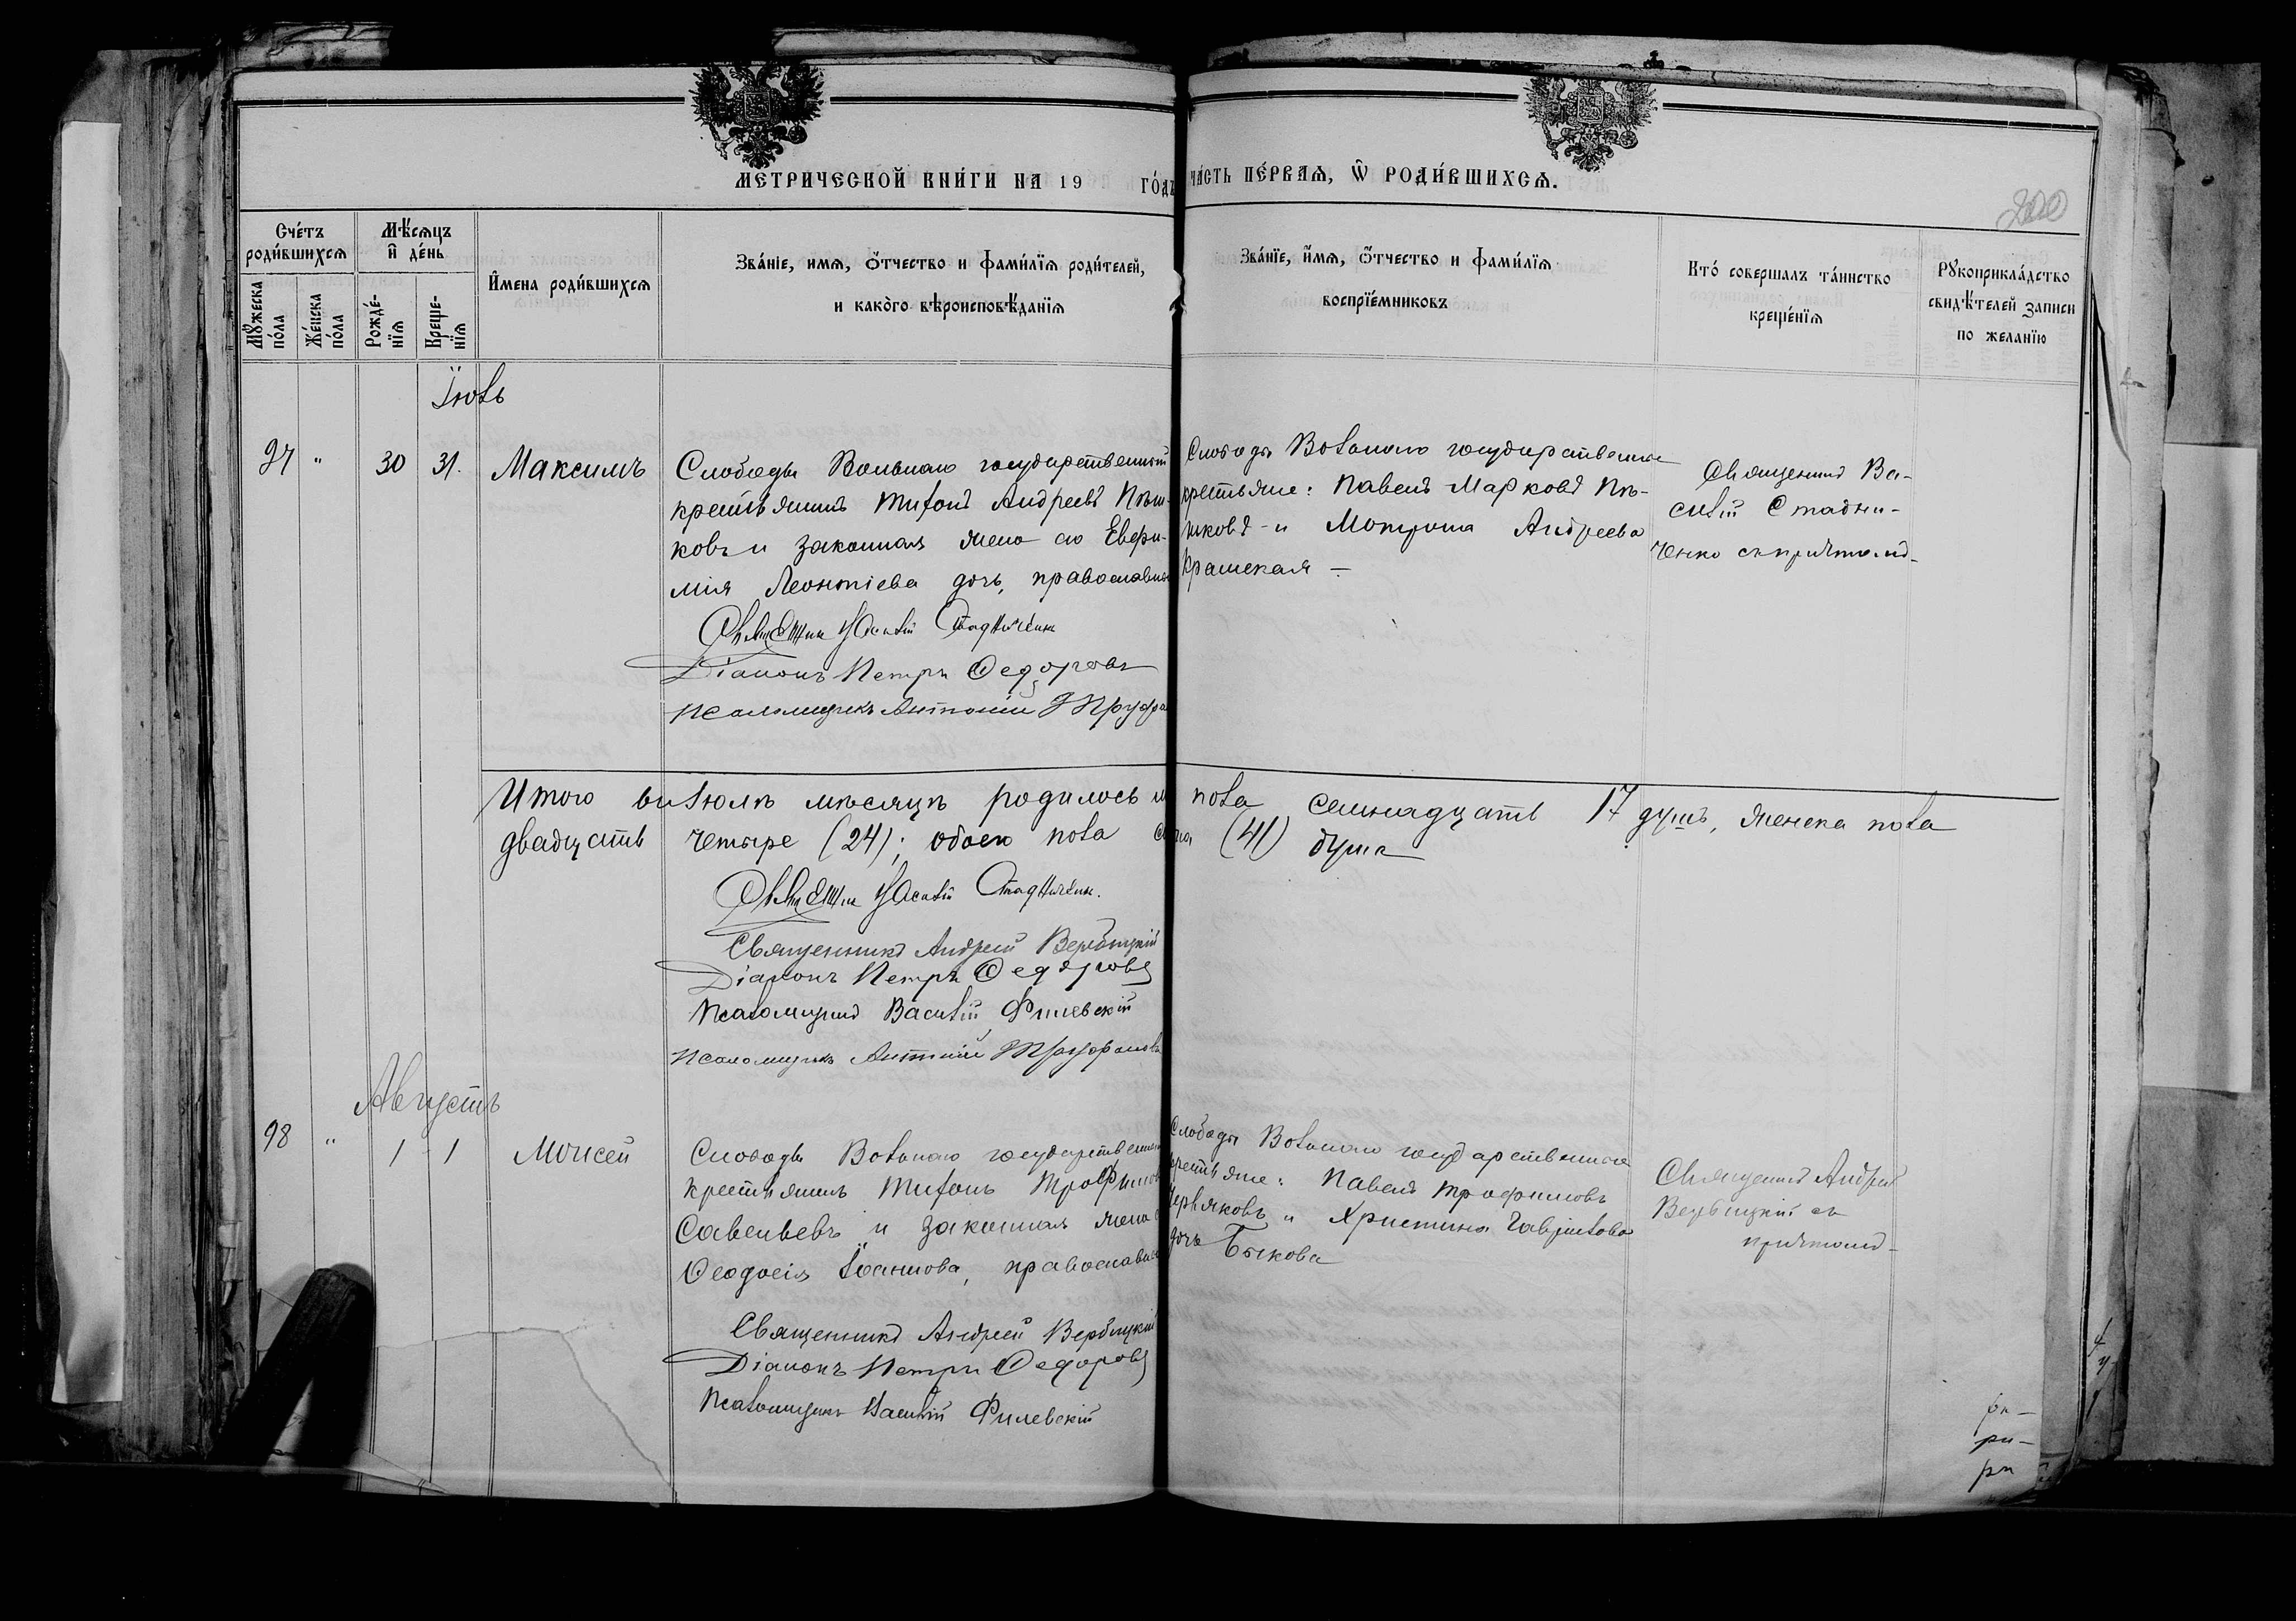 МЕТРИЧЕСКОЙ КНИ́ГИ НА 19 ГО́ДЪ
ЧА́СТЬ ПЕ́РВАѦ, Ѡ РОДИ́ВШИХСѦ.
200
Сче́тъ роди́вшихсѧ
Мѣ́сѧцъ и де́нь
И́мена роди́вшихсѧ
Зва́нїе, имѧ, о́тчество и фами́лїѧ роди́телей,
и како́го вѣроисповѣ́данїѧ
Зва́нїе, и́мѧ, о́тчество и фами́лїѧ
воспрїе́мниковъ
Кто́ совершалъ та́инство
креще́нїѧ
Рꙋкоприкла́дство
свидѣ́телей записи
по желанїю
Мꙋ́жеска по́ла
Же́нска по́ла
Рожде́-нїѧ
Креще-нїѧ
Іюль
97 " 30 31. Максимъ
Слободы Вольнаго государственный
крестьянинъ Тихонъ Андреевъ Пѣш-
ковъ и законная жена его Евфи-
мія Леонтіева дочь, православные
Слободы Вольнаго государственные
крестьяне: Павелъ Марковъ Пѣ-
шковъ и Мотрона Андреева
Священникъ Ва-
силій Стадни-
ченко съ причтомъ
Священник Василій Стадниченко
Діаконъ Петръ Федоровъ
Псаломщикъ Антоній
Итого въ Іюлѣ мѣсяцѣ родилось м пола семнадцать 17 душъ, женска пола
двадцать четыре (24); обоего пола (41) душа
Священник Василій Стадниченко.
Священникъ Андрей Вербицкій
Діаконъ Петръ Федоровъ
Псаломщикъ Василій Филевскій
Псаломщикъ Антоній
Августъ
98 " 1 1 Моисей
Слободы Вольнаго государственный
крестьянинъ Тихонъ Трофимовъ
Савельевъ и законная жена
Ѳеодосія Іоаннова, православные
Слободы Вольнаго государственные
крестьяне: Павелъ Трофимовъ
Червяковъ и Христина Гаврилова
дочь Быкова
Священникъ Андрей
Вербицкій съ
причтомъ
Священникъ Андрей Вербицкій
Діаконъ Петръ Федоровъ
Псаломщикъ Василій Филевскій